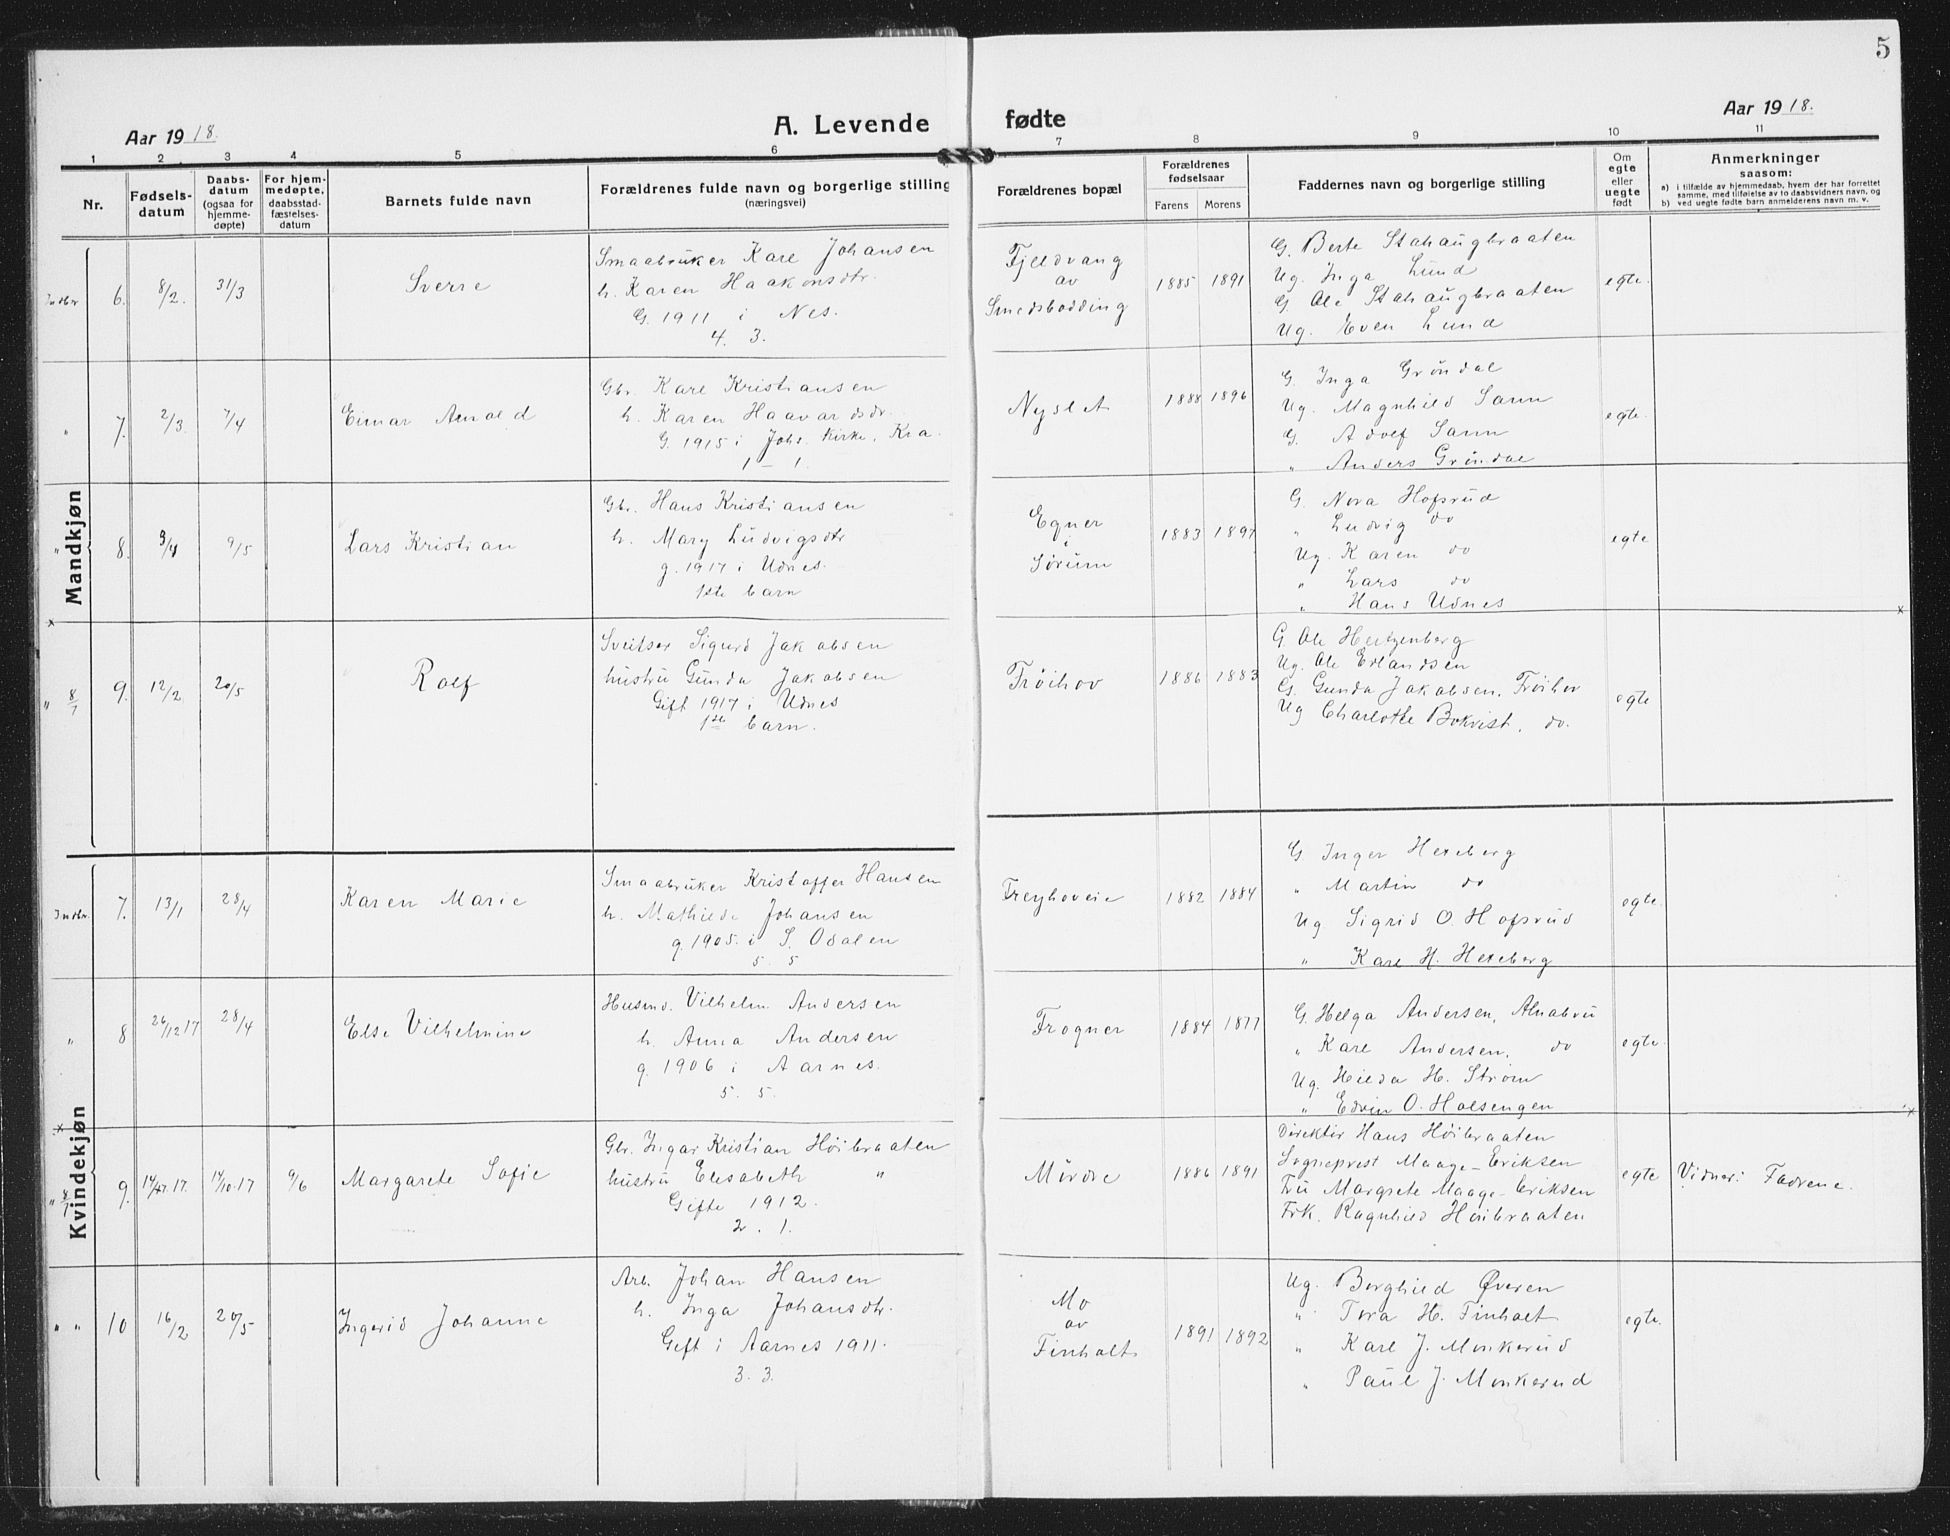 5
Aar 1918.
A. Levende fødte
Aar 1918.
1 2 3 4 5 6 7 8 9 10 11
Nr.
Fødsels-
datum
Daabs-
datum
(ogsaa for
hjemme-
døpte)
For hjem-
medøpte,
daabsstad-
fæstelses-
datum
Barnets fulde navn
Forældrenes fulde navn og borgerlige stilling
(næringsvei)
Forældrenes bopæl
Forældrenes
fødselsaar
Farens Morens
Faddernes navn og borgerlige stilling
Om
egte
eller
uegte
født
Anmerkninger
saasom:
a) i tilfælde av hjemmedaab, hvem der har forrettet
samme, med tilføielse av to daabsvidners navn, og
b) ved uegte fødte barn anmelderens navn m. v.
Mandkjøn
Indbr 6. 8/2. 31/3
Sverre
Smaabruker Karl Johansen
h. Karen Haakonsdtr.
G. 1911 i Nes.
4. 3.
Fjeldvang
av
Smedsbødding
1885 1891
G. Berte Stahaugbraaten
Ug. Inga Lund
G. Ole Stahaugbraaten
Ug. Even Lund
egte.
" 7. 2/3. 7/4
Einar Arnold
Gbr. Karl Kristiansen
h. Karen Haavardsdr.
G. 1915 i Johs. Kirke, Kra.
1 – 1.
Nyslet
1888 1896
G. Inga Grøndal
Ug. Magnhild Sann
G. Adolf Sann
" Anders Grøndal
egte.
" 8. 3/4 9/5
Lars Kristian
Gbr. Hans Kristiansen
h. Mary Ludvigsdtr
g. 1917 i Udnes.
1ste barn
Egner
i
Sørum
1883 1897
G. Nora Hofsrud
" Ludvig do
Ug. Karen do
" Lars do
" Hans Udnes
egte
x x
" 8/7 9. 12/2 20/5
Rolf
Sveitser Sigurd Jakobsen
hustru Gunda Jakobsen
Gift 1917 i Udnes
1ste barn.
Frøihov
1886 1883
G. Ole Hertzenberg
Ug. Ole Erlandsen
G. Gunda Jakobsen, Frøihov
Ug Charlotte Bokvist, do.
egte
Kvindekjøn
Indbr. 7. 13/1 28/4
Karen Marie
Smaabruker Kristoffer Hansen
h. Mathilde Johansen
g. 1905. i S. Odalen
5. 5
Freyhoveie
1882 1884
G. Inger Hexeberg
" Martin do
Ug Sigrid O. Hofsrud
" Karl H. Hexeberg
egte
" 8 26/12 17 28/4
Else Vilhelmine
Husmd. Vilhelm Andersen
h. Anna Andersen
g. 1906 i Aarnes.
5. 5.
Frogner
1884 1877
G. Helga Andersen, Alnabru
" Karl Andersen, do
Ug. Hilda H. Strøm
" Edvin O. Holsengen
egte.
x x
" 8/7 9. 17. 14/10.17 9/6
Margarete Sofie
Gbr. Ingar Kristian Høibraaten
hustru Elisabeth "
Gifte 1912.
2. 1.
Mørdre
1886 1891
Direktør Hans Høibraaten
Sogneprest Maage-Eriksen
Fru Margrete Maage-Eriksen
Frk. Ragnhild Høibraaten
egte
Vidner: Fadrene.
" " 10 16/2 20/5
Ingerid Johanne
Arb. Johan Hansen
h. Inga Johansdtr.
Gift i Aarnes 1911.
3. 3.
Mo
av
Finholt
1891 1892
Ug. Borghild Øveren
" Tora H. Finholt
" Karl J. Monkerud
" Paul J. Monkerud
egte.